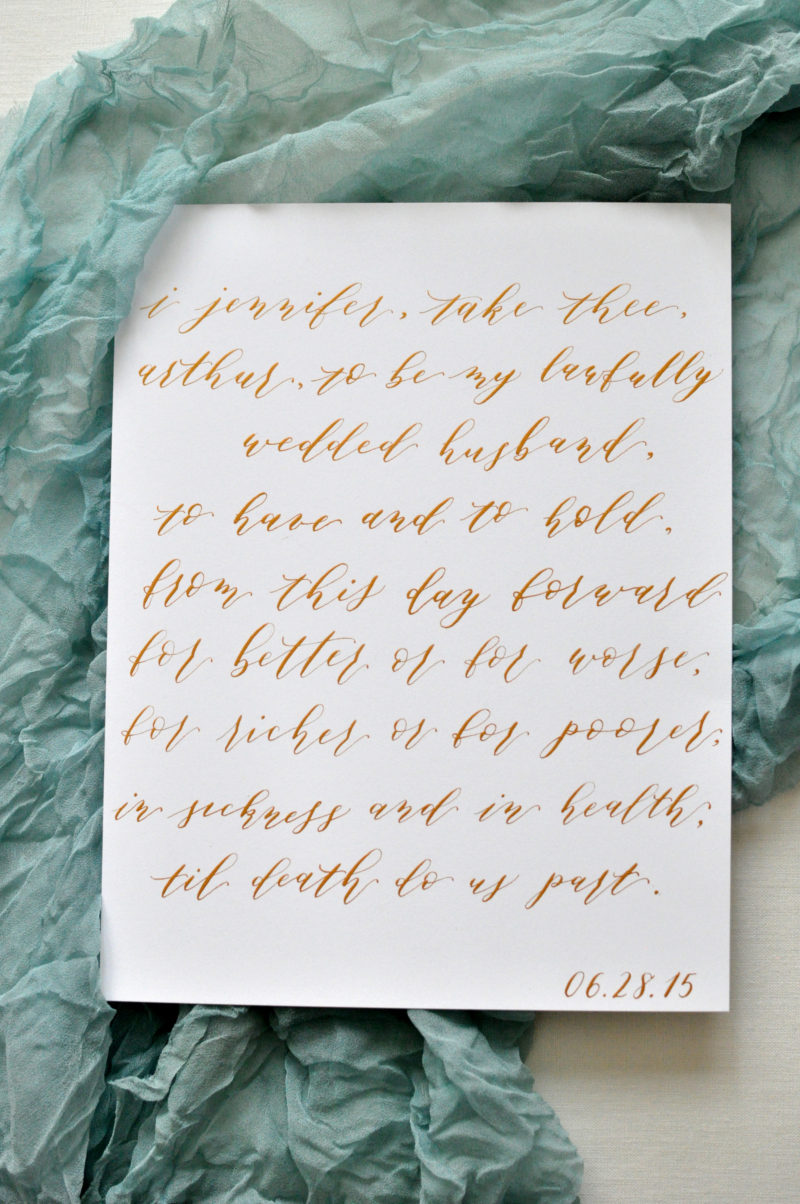 i jennifer, take thee,
arthur, to be my lawfully
wedded husband,
to have and to hold,
from this day forward
for better or for worse,
for richer or for poorer;
in sickness and in health;
til death do us part.
06.28.15